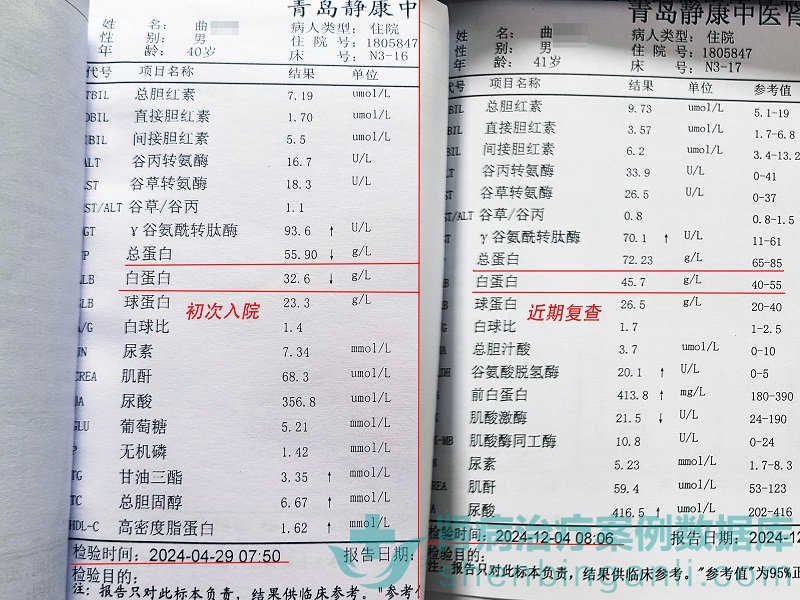 青岛静康中
姓 名: 曲
病人类型: 住院
性 别: 男
住 院 号: 1805847
年 龄: 40岁
床 号: N3-16
代号 项目名称 结果 单位
TBIL 总胆红素 7.19 umol/L
DBIL 直接胆红素 1.70 umol/L
IBIL 间接胆红素 5.5 umol/L
ALT 谷丙转氨酶 16.7 U/L
AST 谷草转氨酶 18.3 U/L
ST/ALT 谷草/谷丙 1.1
GT γ谷氨酰转肽酶 93.6 ↑ U/L
P 总蛋白 55.90 ↓ g/L
LB 白蛋白 32.6 ↓ g/L
LB 球蛋白 23.3 g/L
初次入院
A/G 白球比 1.4
UN 尿素 7.34 mmol/L
CREA 肌酐 68.3 umol/L
UA 尿酸 356.8 umol/L
GLU 葡萄糖 5.21 mmol/L
P 无机磷 1.42 mmol/L
TG 甘油三酯 3.35 ↑ mmol/L
TC 总胆固醇 6.67 ↑ mmol/L
HDL-C 高密度脂蛋白 1.62 ↑ mmol/L
检验时间: 2024-04-29 07:50 报告日期:
检验目的:
注: 报告只对此标本负责，结果供临床参考。"参考
青岛静康中医肾
姓 名: 曲
病人类型: 住院
性 别: 男
住 院 号: 1805847
年 龄: 41岁
床 号: N3-17
代号 项目名称 结果 单位 参考值
BIL 总胆红素 9.73 umol/L 5.1-19
BIL 直接胆红素 3.57 umol/L 1.7-6.8
BIL 间接胆红素 6.2 umol/L 3.4-13.2
LT 谷丙转氨酶 33.9 U/L 0-41
ST 谷草转氨酶 26.5 U/L 0-37
ST/ALT 谷草/谷丙 0.8 0.8-1.5
T γ谷氨酰转肽酶 70.1 ↑ U/L 11-61
总蛋白 72.23 g/L 65-85
B 白蛋白 45.7 g/L 40-55
B 球蛋白 26.5 g/L 20-40
近期复查
G 白球比 1.7 1-2.5
BA 总胆汁酸 3.7 umol/L 0-10
LDH 谷氨酸脱氢酶 20.1 ↑ U/L 0-5
A 前白蛋白 413.8 ↑ mg/L 180-390
K 肌酸激酶 21.5 ↓ U/L 24-190
K-MB 肌酸酶同工酶 10.8 U/L 0-24
N 尿素 5.23 mmol/L 1.7-8.3
REA 肌酐 59.4 umol/L 53-123
A 尿酸 416.5 ↑ umol/L 202-416
检验时间: 2024-12-04 08:06 报告日期: 2024-12
检验目的:
注: 报告只对此标本负责，结果供临床参考。"参考值"为95%正
肾病治疗案例数据库
shenbinganli.com